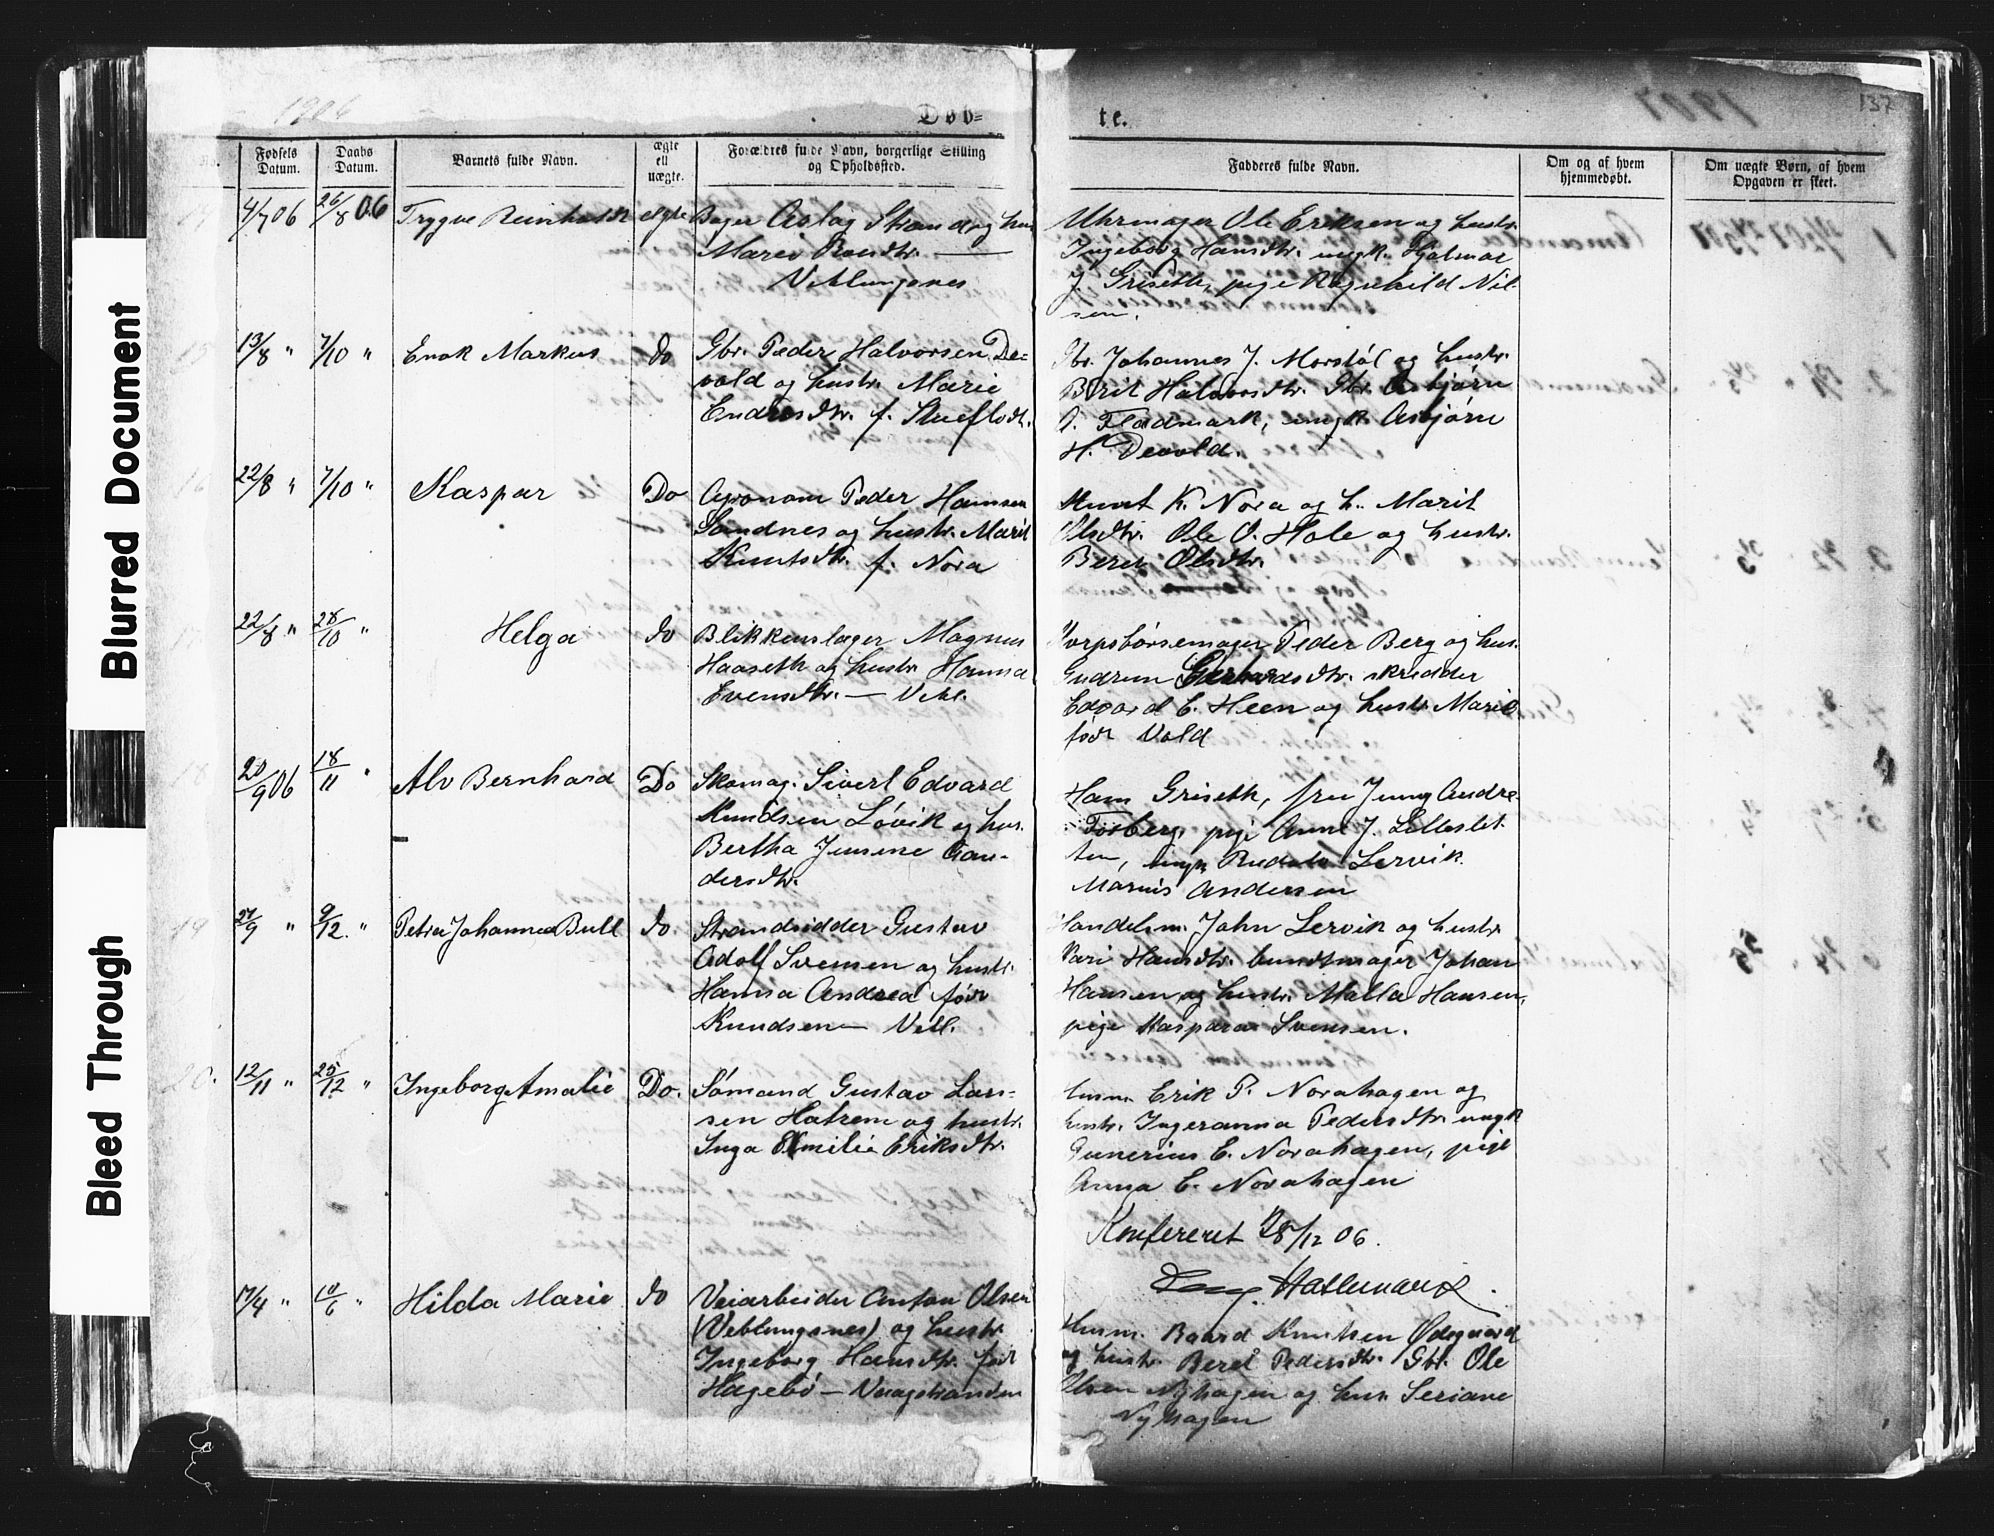 1906
137
Døb-
te.
No.
Fødsels Datum.
Daabs Datum.
Barnets fulde Navn.
ægte ell uægte.
Forældres fulde Navn, borgerlige Stilling og Opholdssted.
Fadderes fulde Navn.
Om og af hvem hjemmedøbt.
Om uægte Børn, af hvem Opgaven er skeet.
Blurred Document
Bleed Through
4/7 06 26/8 06 Trygve Reinholdt ægte
Bager Aslag Strand og hus
Maren
Veblungsnes
Uhrmager Ole Eriksen og hustr.
Ingeborg Hansdtr. ungk. Hjalmar
J. Griseth, pige Ragnhild Nil-
sen.
15 13/8 " 7/10 " Enok Markus do
Gbr. Peder Halvorsen De-
vold og hustr. Marie
Endresdtr. f. Stueflodt.
Gbr. Johannes J. Morstøl og hustr.
Brit Halvorsdtr. Gbr. Asbjørn
O. Fladmark, ungk. Asbjørn
H. Devold.
16 22/8 " 7/10 " Kaspar Do
Agronom Peder Hansen
Sandnes og hustr. Marit
Knutsdtr. f. Nora
Knut K. Nora og h. Marit
Olsdtr. Ole O. Hole og hustr.
Beret Olsdtr.
22/8 " 28/10 " Helga do
Blikkenslager Magnus
Haaseth og hustr. Hanna
Evensdtr. — Vebl.
Korpsbørsemager Peder Berg og hus.
Gudrun Gerhardsdtr. skredder
Edvard E. Heen og hustr. Marie
født Vold
18 20/9 06 18/11 " Alv Bernhard Do
Skomag. Sivert Edvard
Knudsen Løvik og hus.
Bertha Jensine
dersdtr.
Hans Griseth, fru Jenny Andre-
Torberg, pige Anne J. Lilleslet-
ten, ungk Rudolv Lervik
Marius Andersen
19 27/9 " 9/12. " Petra Johannea Bull do.
Strandsidder Gustav
Adolf Svensen og hustr.
Hanna Andrea født
Knudsen — Vebl.
Handelsm. John Lervik og hustr.
Kari Hansdtr. bundtmager Johan
Hansen og hustr. Malla Hansen,
pige Kaspara Svensen.
20. 12/11 " 25/12 " Ingeborg Amalie Do.
Sømand Gustav Lar-
sen Hatrem og hustr.
Inga Emilie Eriksdtr.
Husm. Erik P. Norahagen og
hustr. Ingeranna Pedersdtr. ungk
Gunerius E. Norahagen, pige
Anna E. Norahagen
Konfereret 28/12 06.
17/4 " 10/6 " Hilda Marie do
Veiarbeider Anton Olsen
(Veblungsnes) og hustr.
Ingeborg Hansdtr. født
Hagebø — Vaagstranden
Husm. Baard Knutsen Ødegaard
og hustr. Beret Pedersdtr. Gbr. Ole
Olsen Nyhagen og hus. Seriane
Nyhagen